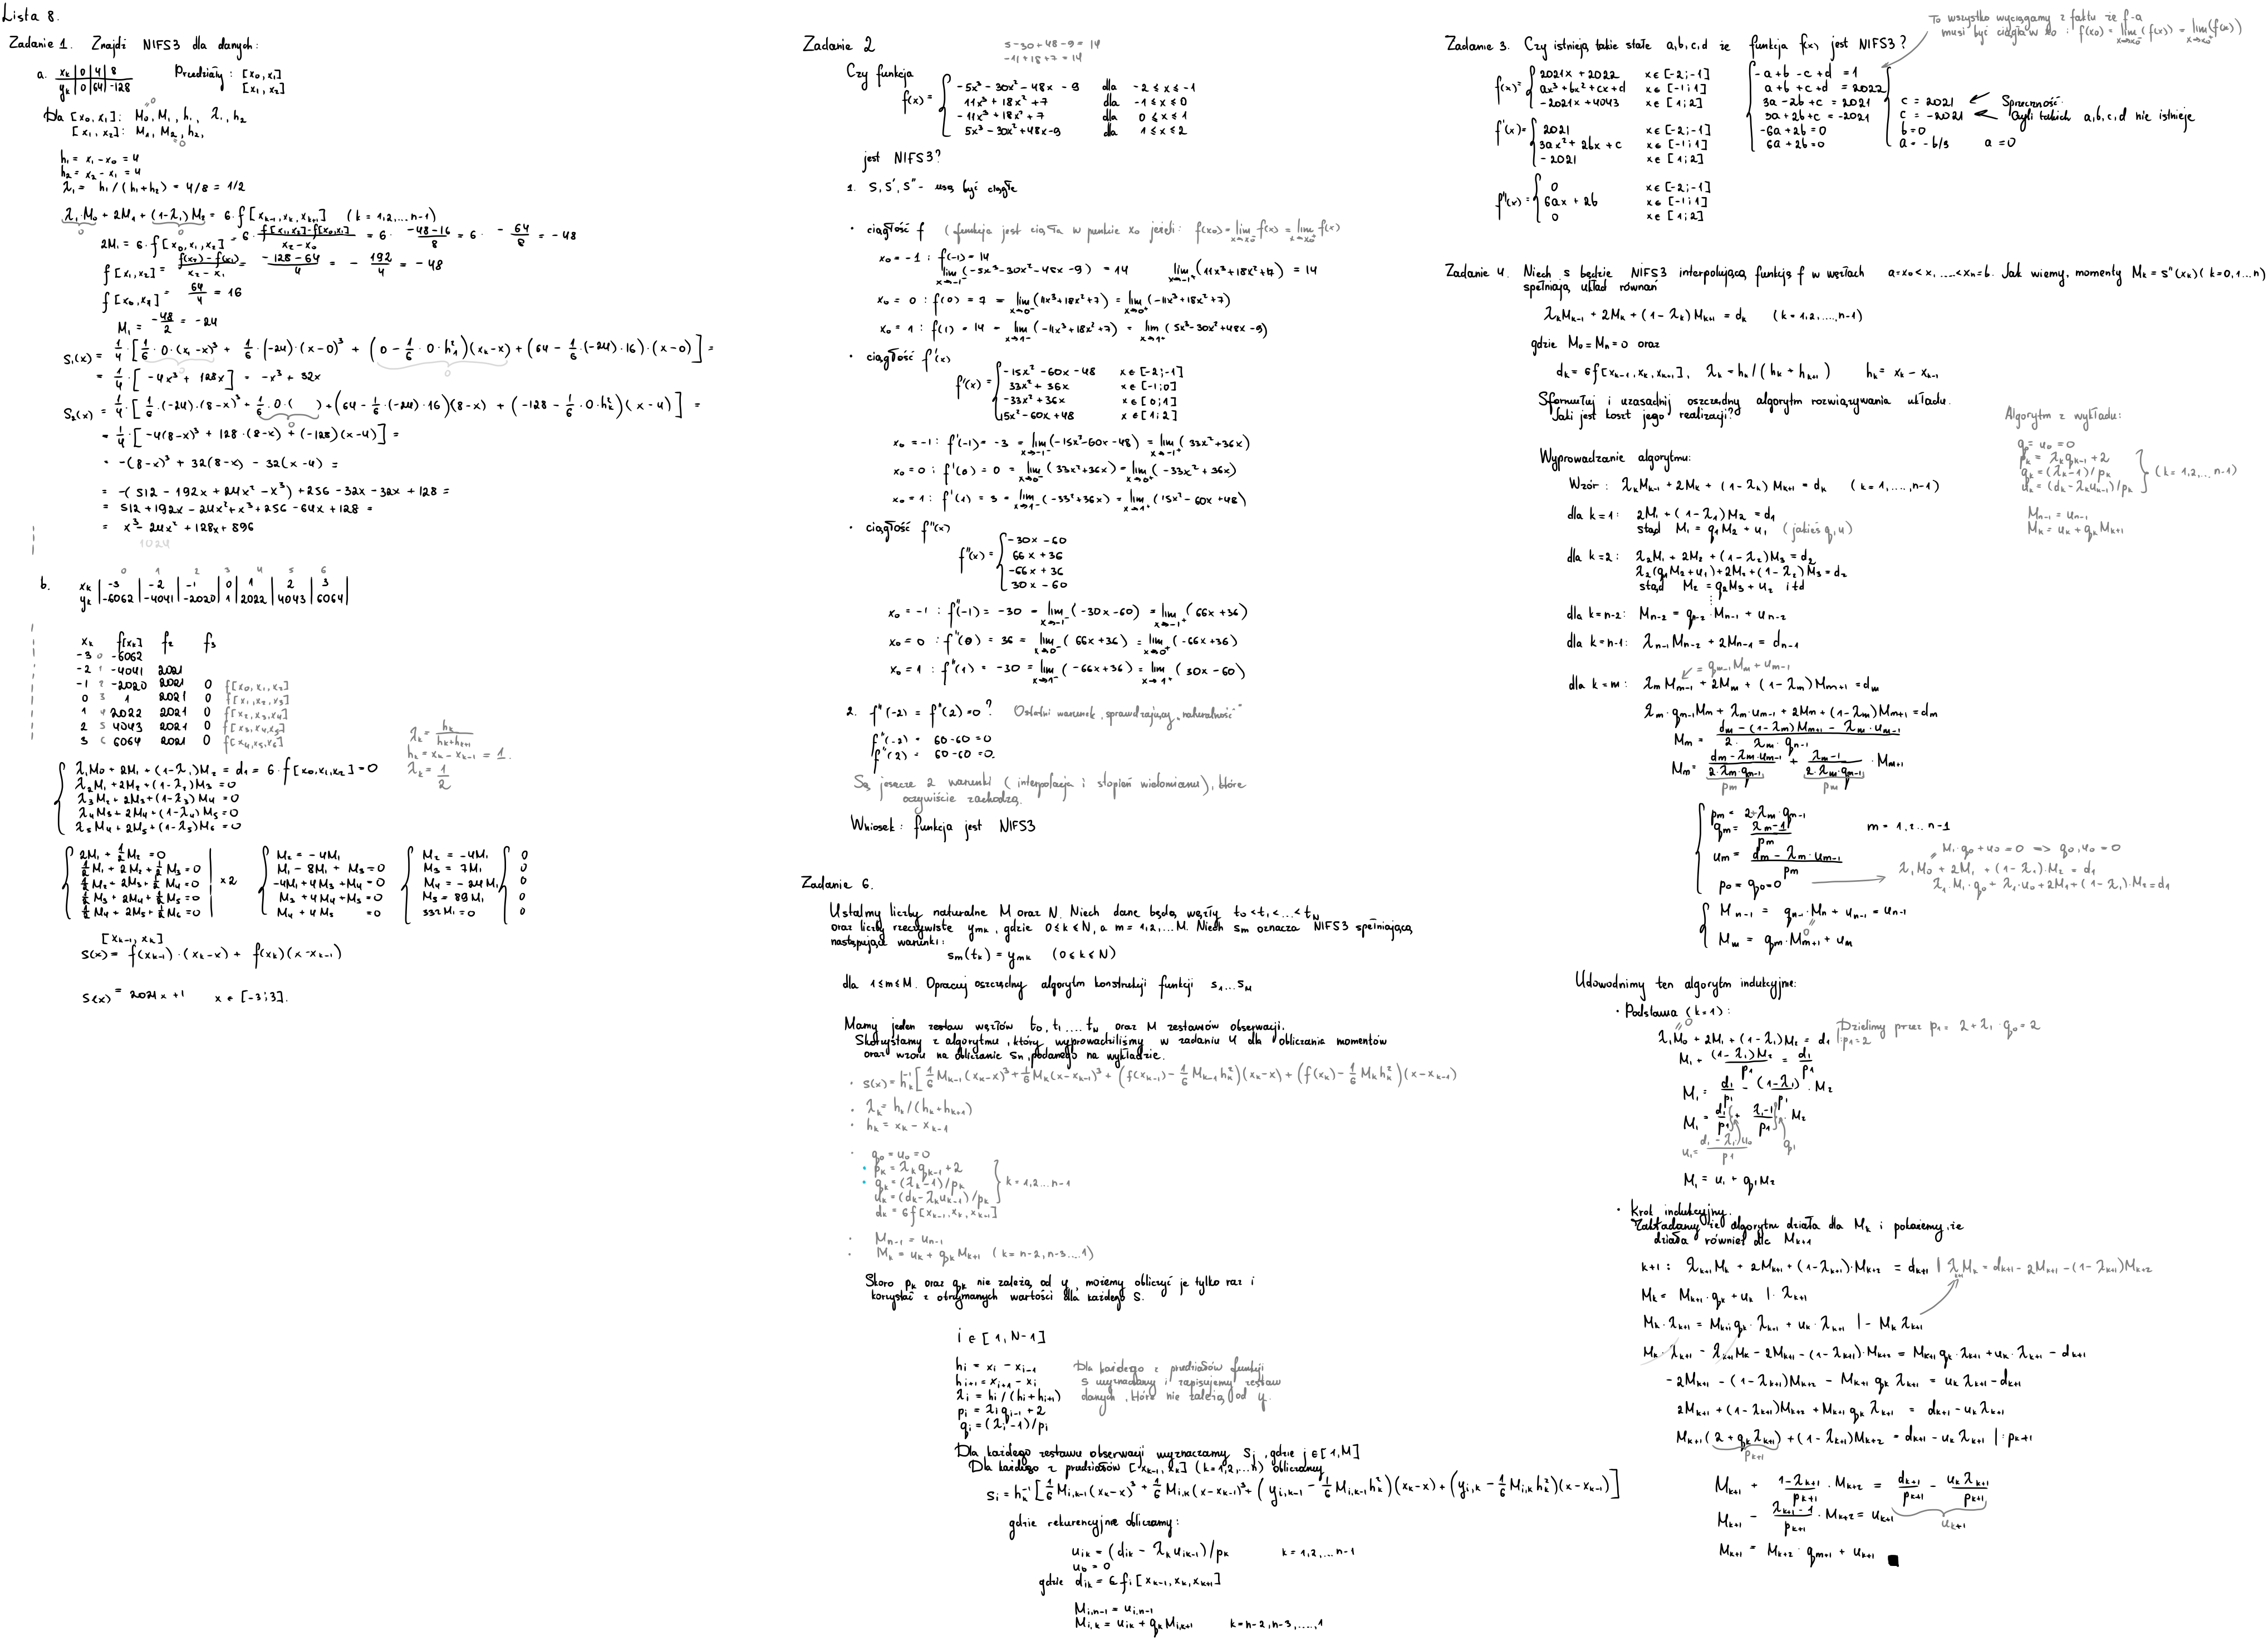 Lista 8.
Zadanie 1. Znajdź NIFS3 dla danych:
a. xₖ | 0 | 4 | 8
yₖ | 0 | 64 | -128
Przedziały: [x₀, x₁]
[x₁, x₂]
Dla [x₀, x₁]: M₀, M₁, h₁, λ₁, h₂
[x₁, x₂]: M₁, M₂, h₂,
h₁ = x₁ - x₀ = 4
h₂ = x₂ - x₁ = 4
λ₁ = h₁ / (h₁+h₂) = 4/8 = 1/2
λ₁·M₀ + 2M₁ + (1-λ₁)M₂ = 6·f[xₖ₋₁, xₖ, xₖ₊₁] (k = 1,2,...n-1)
2M₁ = 6·f[x₀, x₁, x₂] = 6· (f[x₁,x₂]-f[x₀,x₁])/(x₂-x₀) = 6· (-48-16)/8 = 6· -64/8 = -48
f[x₁,x₂] = (f(x₂)-f(x₁))/(x₂-x₁) = (-128-64)/4 = -192/4 = -48
f[x₀,x₁] = 64/4 = 16
M₁ = -48/2 = -24
S₁(x) = 1/4·[1/6·0·(x₁-x)³ + 1/6·(-24)·(x-0)³ + (0 - 1/6·0·h₁²)(xₖ-x) + (64 - 1/6·(-24)·16)·(x-0)] =
= 1/4·[-4x³ + 128x] = -x³ + 32x
S₂(x) = 1/4·[1/6·(-24)·(8-x)³ + 1/6·0·( ) + (64 - 1/6·(-24)·16)(8-x) + (-128 - 1/6·0·hₖ²)(x-4)] =
= 1/4·[-4(8-x)³ + 128·(8-x) + (-128)(x-4)] =
= -(8-x)³ + 32(8-x) - 32(x-4) =
= -(512 - 192x + 24x² - x³) + 256 - 32x - 32x + 128 =
= 512 + 192x - 24x² + x³ + 256 - 64x + 128 =
= x³ - 24x² + 128x + 896
1024
0 1 2 3 4 5 6
b. xₖ | -3 | -2 | -1 | 0 | 1 | 2 | 3
yₖ | -6062 | -4041 | -2020 | 1 | 2022 | 4043 | 6064
xₖ f[xₖ] f₂ f₃
-3 0 -6062
-2 1 -4041 2021
-1 2 -2020 2021 0 f[x₀,x₁,x₂]
0 3 1 2021 0 f[x₁,x₂,x₃]
1 4 2022 2021 0 f[x₂,x₃,x₄]
2 5 4043 2021 0 f[x₃,x₄,x₅]
3 6 6064 2021 0 f[x₄,x₅,x₆]
λₖ = hₖ/(hₖ+hₖ₊₁)
hₖ = xₖ - xₖ₋₁ = 1.
λₖ = 1/2
λ₁M₀ + 2M₁ + (1-λ₁)M₂ = d₁ = 6·f[x₀,x₁,x₂] = 0
λ₂M₁ + 2M₂ + (1-λ₂)M₃ = 0
λ₃M₂ + 2M₃ + (1-λ₃)M₄ = 0
λ₄M₃ + 2M₄ + (1-λ₄)M₅ = 0
λ₅M₄ + 2M₅ + (1-λ₅)M₆ = 0
2M₁ + 1/2M₂ = 0 | M₂ = -4M₁ | M₂ = -4M₁ | 0
1/2M₁ + 2M₂ + 1/2M₃ = 0 | M₁ - 8M₁ + M₃ = 0 | M₃ = 7M₁ | 0
1/2M₂ + 2M₃ + 1/2M₄ = 0 | x2 -4M₁ + 4M₃ + M₄ = 0 | M₄ = -24M₁ | 0
1/2M₃ + 2M₄ + 1/2M₅ = 0 | M₃ + 4M₄ + M₅ = 0 | M₅ = 89M₁ | 0
1/2M₄ + 2M₅ + 1/2M₆ = 0 | M₄ + 4M₅ = 0 | 332M₁ = 0 | 0
[xₖ₋₁, xₖ]
S(x) = f(xₖ₋₁)·(xₖ-x) + f(xₖ)(x-xₖ₋₁)
S(x) = 2021x + 1 x ∈ [-3;3].
Zadanie 2
5-30+48-9 = 14
-11+18+7 = 14
Czy funkcja
f(x) = { -5x³ - 30x² - 48x - 9 dla -2 ≤ x ≤ -1
11x³ + 18x² + 7 dla -1 ≤ x ≤ 0
-11x³ + 18x² + 7 dla 0 ≤ x ≤ 1
5x³ - 30x² + 48x - 9 dla 1 ≤ x ≤ 2
jest NIFS3?
1. S, S', S'' - muszą być ciągłe
• ciągłość f (funkcja jest ciągła w punkcie x₀ jeżeli: f(x₀) = lim x→x₀⁻ f(x) = lim x→x₀⁺ f(x)
x₀ = -1 : f(-1) = 14
lim x→-1⁻ (-5x³-30x²-48x-9) = 14 lim x→-1⁺ (11x³+18x²+7) = 14
x₀ = 0 : f(0) = 7 = lim x→0⁻ (11x³+18x²+7) = lim x→0⁺ (-11x³+18x²+7)
x₀ = 1 : f(1) = 14 = lim x→1⁻ (-11x³+18x²+7) = lim x→1⁺ (5x³-30x²+48x-9)
• ciągłość f'(x)
f'(x) = { -15x² - 60x - 48 x ∈ [-2;-1]
33x² + 36x x ∈ [-1;0]
-33x² + 36x x ∈ [0;1]
15x² - 60x + 48 x ∈ [1;2]
x₀ = -1 : f'(-1) = -3 = lim x→-1⁻ (-15x²-60x-48) = lim x→-1⁺ (33x²+36x)
x₀ = 0 : f'(0) = 0 = lim x→0⁻ (33x²+36x) = lim x→0⁺ (-33x²+36x)
x₀ = 1 : f'(1) = 3 = lim x→1⁻ (-33²+36x) = lim x→1⁺ (15x²-60x+48)
• ciągłość f''(x)
f''(x) = { -30x - 60
66x + 36
-66x + 36
30x - 60
x₀ = -1 : f''(-1) = -30 = lim x→-1⁻ (-30x-60) = lim x→-1⁺ (66x+36)
x₀ = 0 : f''(0) = 36 = lim x→0⁻ (66x+36) = lim x→0⁺ (-66x+36)
x₀ = 1 : f''(1) = -30 = lim x→1⁻ (-66x+36) = lim x→1⁺ (30x-60)
2. f''(-2) = f''(2) = 0? Ostatni warunek, sprawdzający „naturalność"
f''(-2) = 60-60 = 0
f''(2) = 60-60 = 0.
Są jeszcze 2 warunki (interpolacja i stopień wielomianu), które
oczywiście zachodzą.
Wniosek: funkcja jest NIFS3
Zadanie 6.
Ustalmy liczby naturalne M oraz N. Niech dane będą węzły t₀ < t₁ < ... < t_N
oraz liczby rzeczywiste yₘₖ, gdzie 0≤k≤N, a m = 1,2,...M. Niech sₘ oznacza NIFS3 spełniającą
następujące warunki:
sₘ(tₖ) = yₘₖ (0 ≤ k ≤ N)
dla 1≤m≤M. Opracuj oszczędny algorytm konstrukcji funkcji s₁...s_M
Mamy jeden zestaw węzłów t₀, t₁....t_N oraz M zestawów obserwacji.
Skorzystamy z algorytmu, który wyprowadziliśmy w zadaniu 4 dla obliczania momentów
oraz wzoru na obliczanie Sn, podanego na wykładzie.
• s(x) = hₖ⁻¹[1/6Mₖ₋₁(xₖ-x)³ + 1/6Mₖ(x-xₖ₋₁)³ + (f(xₖ₋₁) - 1/6Mₖ₋₁hₖ²)(xₖ-x) + (f(xₖ) - 1/6Mₖhₖ²)(x-xₖ₋₁)
• λₖ = hₖ/(hₖ+hₖ₊₁)
• hₖ = xₖ - xₖ₋₁
• q₀ = u₀ = 0
• pₖ = λₖqₖ₋₁ + 2
• qₖ = (λₖ-1)/pₖ } k = 1,2...n-1
uₖ = (dₖ-λₖuₖ₋₁)/pₖ
dₖ = 6f[xₖ₋₁, xₖ, xₖ₊₁]
• Mₙ₋₁ = uₙ₋₁
• Mₖ = uₖ + qₖMₖ₊₁ (k = n-2, n-3....1)
Skoro pₖ oraz qₖ nie zależą od y, możemy obliczyć je tylko raz i
korzystać z otrzymanych wartości dla każdego S.
i ∈ [1, N-1]
hᵢ = xᵢ - xᵢ₋₁
hᵢ₊₁ = xᵢ₊₁ - xᵢ
λᵢ = hᵢ / (hᵢ+hᵢ₊₁)
pᵢ = λᵢqᵢ₋₁ + 2
qᵢ = (λᵢ-1)/pᵢ
Dla każdego z przedziałów funkcji
s wyznaczamy i zapisujemy zestaw
danych, które nie zależą od y.
Dla każdego zestawu obserwacji wyznaczamy Sⱼ, gdzie j∈[1,M]
Dla każdego z przedziałów [xₖ₋₁, xₖ] (k=1,2,...n) obliczamy
Sᵢ = hₖ⁻¹[1/6Mᵢ,ₖ₋₁(xₖ-x)³ + 1/6Mᵢ,ₖ(x-xₖ₋₁)³ + (yᵢ,ₖ₋₁ - 1/6Mᵢ,ₖ₋₁hₖ²)(xₖ-x) + (yᵢ,ₖ - 1/6Mᵢ,ₖhₖ²)(x-xₖ₋₁)]
gdzie rekurencyjnie obliczamy:
uᵢₖ = (dᵢₖ - λₖuᵢₖ₋₁)/pₖ k = 1,2,...n-1
u₀ = 0
gdzie dᵢₖ = 6fᵢ[xₖ₋₁, xₖ, xₖ₊₁]
Mᵢ,ₙ₋₁ = uᵢ,ₙ₋₁
Mᵢ,ₖ = uᵢₖ + qₖMᵢ,ₖ₊₁ k = n-2, n-3, ...., 1
To wszystko wyciągamy z faktu że f-a
musi być ciągła w x₀ : f(x₀) = lim x→x₀⁻ (f(x)) = lim x→x₀⁺ (f(x))
Zadanie 3. Czy istnieją takie stałe a,b,c,d że funkcja f(x) jest NIFS3?
f(x) = { 2021x + 2022 x ∈ [-2;-1]
ax³ + bx² + cx + d x ∈ [-1;1]
-2021x + 4043 x ∈ [1;2]
f'(x) = { 2021 x ∈ [-2;-1]
3ax² + 2bx + c x ∈ [-1;1]
-2021 x ∈ [1;2]
f''(x) = { 0 x ∈ [-2;-1]
6ax + 2b x ∈ [-1;1]
0 x ∈ [1;2]
-a + b - c + d = 1
a + b + c + d = 2022
3a - 2b + c = 2021
3a + 2b + c = -2021
-6a + 2b = 0
6a + 2b = 0
c = 2021
c = -2021
b = 0
a = -b/3 a = 0
Sprzeczność.
Czyli takich a,b,c,d nie istnieje
Zadanie 4. Niech s będzie NIFS3 interpolującą funkcję f w węzłach a=x₀<x, ....<xₙ=b. Jak wiemy, momenty Mₖ = s''(xₖ) (k=0,1...n)
spełniają układ równań
λₖMₖ₋₁ + 2Mₖ + (1-λₖ)Mₖ₊₁ = dₖ (k = 1,2,....,n-1)
gdzie M₀ = Mₙ = 0 oraz
dₖ = 6f[xₖ₋₁, xₖ, xₖ₊₁], λₖ = hₖ / (hₖ + hₖ₊₁) hₖ = xₖ - xₖ₋₁
Sformułuj i uzasadnij oszczędny algorytm rozwiązywania układu.
Jaki jest koszt jego realizacji?
Algorytm z wykładu:
q₀ = u₀ = 0
pₖ = λₖqₖ₋₁ + 2
qₖ = (λₖ-1)/pₖ } (k = 1,2,... n-1)
uₖ = (dₖ-λₖuₖ₋₁)/pₖ
Mₙ₋₁ = uₙ₋₁
Mₖ = uₖ + qₖMₖ₊₁
Wyprowadzanie algorytmu:
Wzór : λₖMₖ₋₁ + 2Mₖ + (1-λₖ)Mₖ₊₁ = dₖ (k = 1,....,n-1)
dla k=1: 2M₁ + (1-λ₁)M₂ = d₁
stąd M₁ = q₁M₂ + u₁ (jakieś q,u)
dla k=2: λ₂M₁ + 2M₂ + (1-λ₂)M₃ = d₂
λ₂(q₁M₂+u₁) + 2M₂ + (1-λ₂)M₃ = d₂
stąd M₂ = q₂M₃ + u₂ itd
⋮
dla k=n-2: Mₙ₋₂ = qₙ₋₂·Mₙ₋₁ + uₙ₋₂
dla k=n-1: λₙ₋₁Mₙ₋₂ + 2Mₙ₋₁ = dₙ₋₁
= qₘ₋₁Mₘ + uₘ₋₁
dla k=m: λₘMₘ₋₁ + 2Mₘ + (1-λₘ)Mₘ₊₁ = dₘ
λₘ·qₘ₋₁Mₘ + λₘ·uₘ₋₁ + 2Mₘ + (1-λₘ)Mₘ₊₁ = dₘ
Mₘ = (dₘ - (1-λₘ)Mₘ₊₁ - λₘ·uₘ₋₁)/(2·λₘ·qₙ₋₁)
Mₘ = (dₘ-λₘ·uₘ₋₁)/(2·λₘ·qₘ₋₁) + (λₘ₋₁)/(2·λₘ·qₘ₋₁) · Mₘ₊₁
pₘ pₘ
pₘ = 2+λₘ·qₘ₋₁
qₘ = (λₘ-1)/pₘ m = 1,2... n-1
uₘ = (dₘ - λₘ·uₘ₋₁)/pₘ
p₀ = q₀ = 0
M₁·q₀ + u₀ = 0 => q₀,u₀ = 0
λ₁M₀ + 2M₁ + (1-λ₁)·M₂ = d₁
λ₁·M₁·q₀ + λ₁·u₀ + 2M₁ + (1-λ₁)·M₂ = d₁
Mₙ₋₁ = qₙ₋₁·Mₙ + uₙ₋₁ = uₙ₋₁
0
Mₘ = qₘ·Mₘ₊₁ + uₘ
Udowodnimy ten algorytm indukcyjnie:
• Podstawa (k=1):
λ₁M₀ + 2M₁ + (1-λ₁)M₂ = d₁ |:p₁=2
Dzielimy przez p₁ = 2+λ₁·q₀ = 2
M₁ + (1-λ₁)M₂/p₁ = d₁/p₁
M₁ = d₁/p₁ - (1-λ₁)/p₁ · M₂
M₁ = d₁/p₁ + (λ₁-1)/p₁ · M₂
u₁ = (d₁-λ₁)u₀/p₁ q₁
M₁ = u₁ + q₁M₂
• Krok indukcyjny.
Zakładamy że algorytm działa dla Mₖ i pokażemy, że
działa również dla Mₖ₊₁
k+1: λₖ₊₁Mₖ + 2Mₖ₊₁ + (1-λₖ₊₁)·Mₖ₊₂ = dₖ₊₁ | λₖ₊₁Mₖ = dₖ₊₁ - 2Mₖ₊₁ - (1-λₖ₊₁)Mₖ₊₂
Mₖ = Mₖ₊₁·qₖ + uₖ |·λₖ₊₁
Mₖ·λₖ₊₁ = Mₖ₊₁qₖ·λₖ₊₁ + uₖ·λₖ₊₁ | - Mₖλₖ₊₁
Mₖ·λₖ₊₁ - λₖ₊₁Mₖ - 2Mₖ₊₁ - (1-λₖ₊₁)·Mₖ₊₂ = Mₖ₊₁qₖ·λₖ₊₁ + uₖ·λₖ₊₁ - dₖ₊₁
-2Mₖ₊₁ - (1-λₖ₊₁)Mₖ₊₂ - Mₖ₊₁qₖλₖ₊₁ = uₖλₖ₊₁ - dₖ₊₁
2Mₖ₊₁ + (1-λₖ₊₁)Mₖ₊₂ + Mₖ₊₁qₖλₖ₊₁ = dₖ₊₁ - uₖλₖ₊₁
Mₖ₊₁(2+qₖλₖ₊₁) + (1-λₖ₊₁)Mₖ₊₂ = dₖ₊₁ - uₖλₖ₊₁ |:pₖ₊₁
pₖ₊₁
Mₖ₊₁ + (1-λₖ₊₁)/pₖ₊₁ · Mₖ₊₂ = dₖ₊₁/pₖ₊₁ - uₖλₖ₊₁/pₖ₊₁
Mₖ₊₁ - (λₖ₊₁-1)/pₖ₊₁ · Mₖ₊₂ = uₖ₊₁
uₖ₊₁
Mₖ₊₁ = Mₖ₊₂·qₘ₊₁ + uₖ₊₁ ■